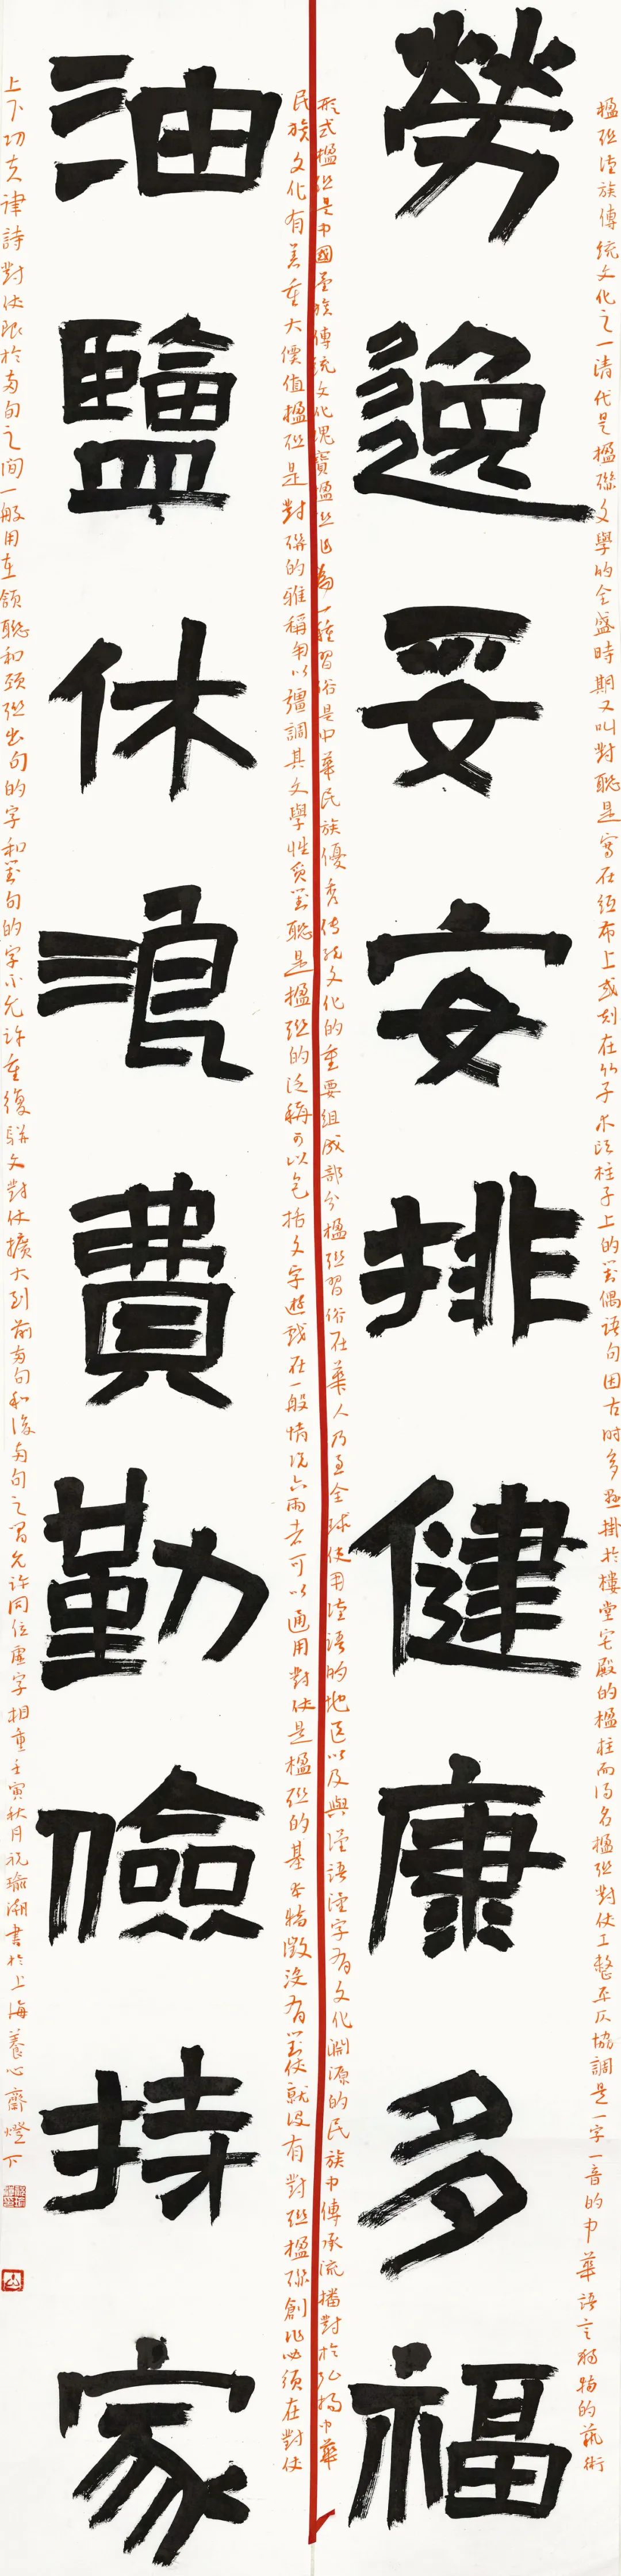 勞逸妥安排健康多福
油鹽休浪費勤儉持家
楹聯漢族傳統文化之一清代是楹聯文學的全盛時期又叫對聯是寫在紙布上或刻在竹子木頭柱子上的對偶語句因古時多懸掛於樓堂宅殿的楹柱而得名楹聯對仗工整平仄協調是一字一音的中華語言獨特的藝術
形式楹聯是中國漢族傳統文化瑰寶楹聯作為一種習俗是中華民族優秀傳統文化的重要組成部分楹聯習俗在華人乃至全球使用漢語的地區以及與漢語漢字有文化淵源的民族中傳承流播對於弘揚中華
民族文化有着重大價值楹聯是對聯的雅稱用以彊調其文學性質對聯是楹聯的泛稱可以包括文字遊戲在一般情況六兩者可以通用對仗是楹聯的基本特徵沒有對仗就沒有對聯楹聯創作必須在對仗
上下功夫律詩對仗限於兩句之間一般用在頷聯和頸聯出句的字和對句的字不允許重復駢文對仗擴大到前兩句和後兩句之間允許同位虛字相重壬寅秋月祝瑜湖書於上海養心齋燈下